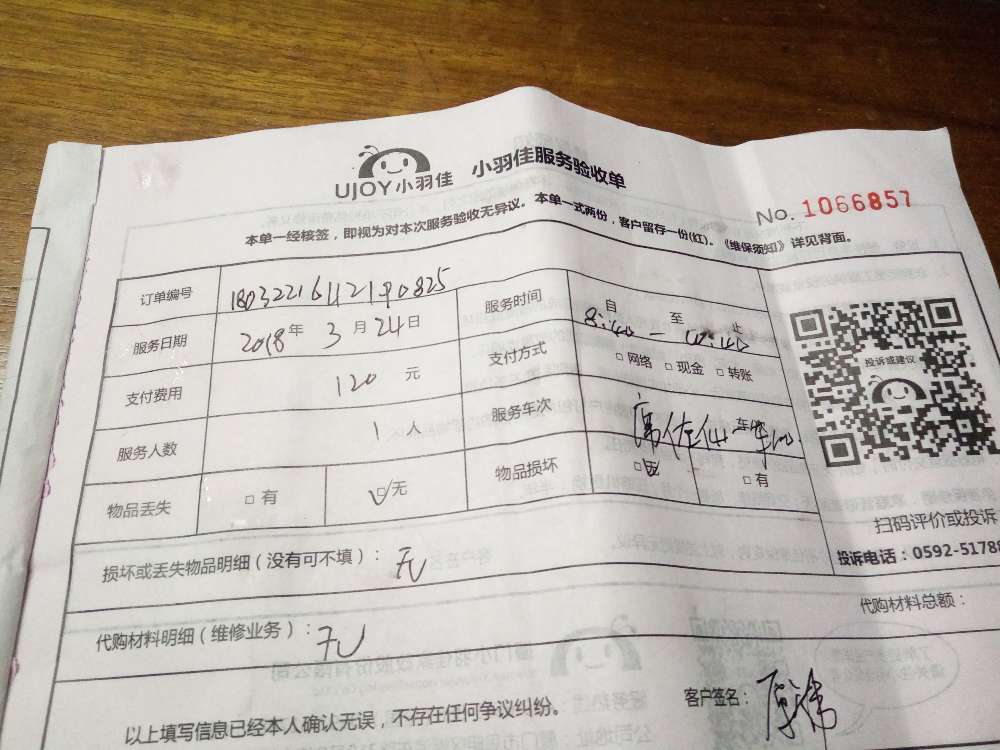 UJOY小羽佳 小羽佳服务验收单
No. 1066857
本单一经核签，即视为对本次服务验收无异议。本单一式两份，客户留存一份(红)。《维保须知》详见背面。
订单编号
服务时间 自 至 止
8:40 — 10:40
服务日期 2018年 3月24日
支付方式 □网络 □现金 □转账
支付费用 120 元
服务人数 1 人
服务车次
物品丢失 □有 ☑无
物品损坏 □无 □有
投诉或建议
扫码评价或投诉
投诉电话：0592-51788
损坏或丢失物品明细（没有可不填）：无
代购材料明细（维修业务）：无
代购材料总额：
以上填写信息已经本人确认无误，不存在任何争议纠纷。
客户签名：